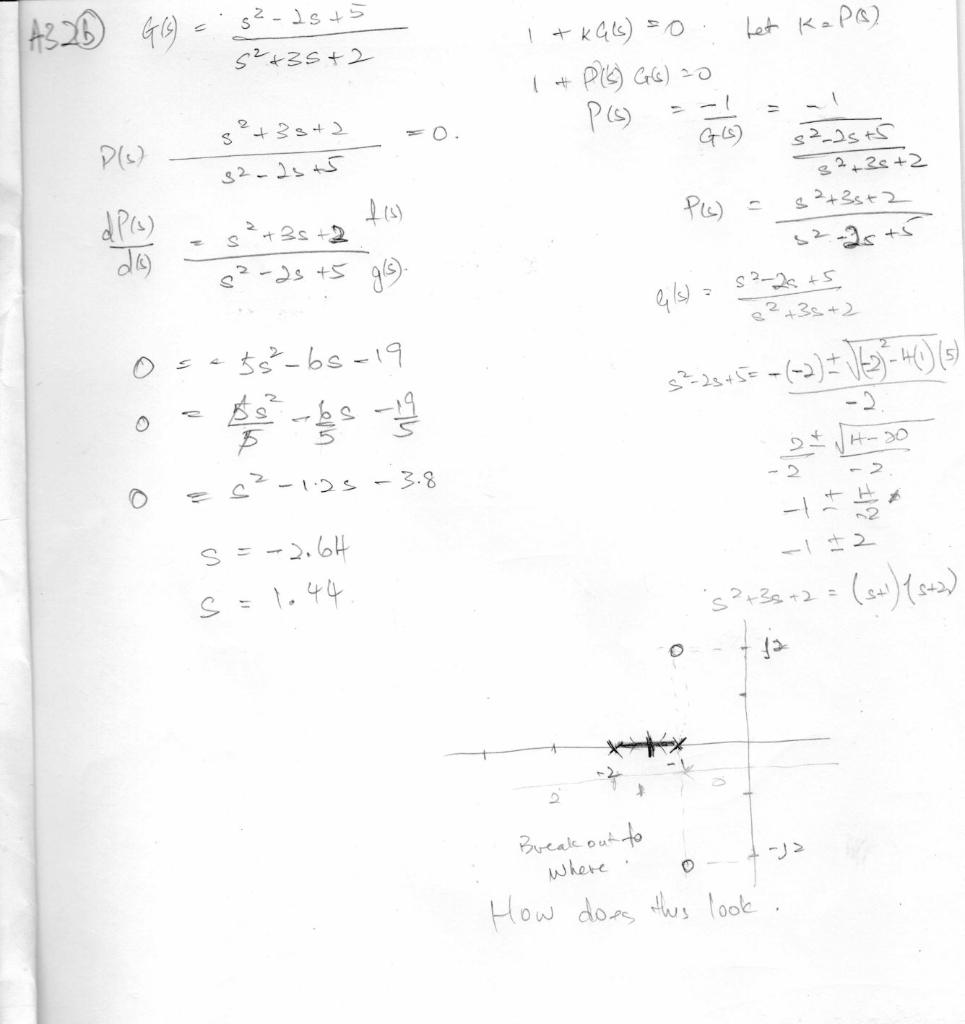 A3 2(b) G(s) = s² - 2s + 5 / s² + 3s + 2
P(s) s² + 3s + 2 / s² - 2s + 5 = 0.
dP(s) / d(s) = s² + 3s + 2 f(s) / s² - 2s + 5 g(s).
0 = - 5s² - 6s - 19
0 = 5s² / 5 - 6s / 5 - 19 / 5
0 = s² - 1.2s - 3.8
s = -2.64
s = 1.44
1 + KG(s) = 0 . Let K = P(s)
1 + P(s) G(s) = 0
P(s) = -1 / G(s) = -1 / s² - 2s + 5 / s² + 3s + 2
P(s) = s² + 3s + 2 / s² - 2s + 5
G(s) = s² - 2s + 5 / s² + 3s + 2
s² - 2s + 5 = -(-2) ± √(-2)² - 4(1)(5) / -2
2 ± √4 - 20 / -2 -2
-1 ± 4 / -2
-1 ± 2
s² + 3s + 2 = (s+1)(s+2)
j2
-2 -1
2 1 0
-j2
Break out to
where
How does this look .